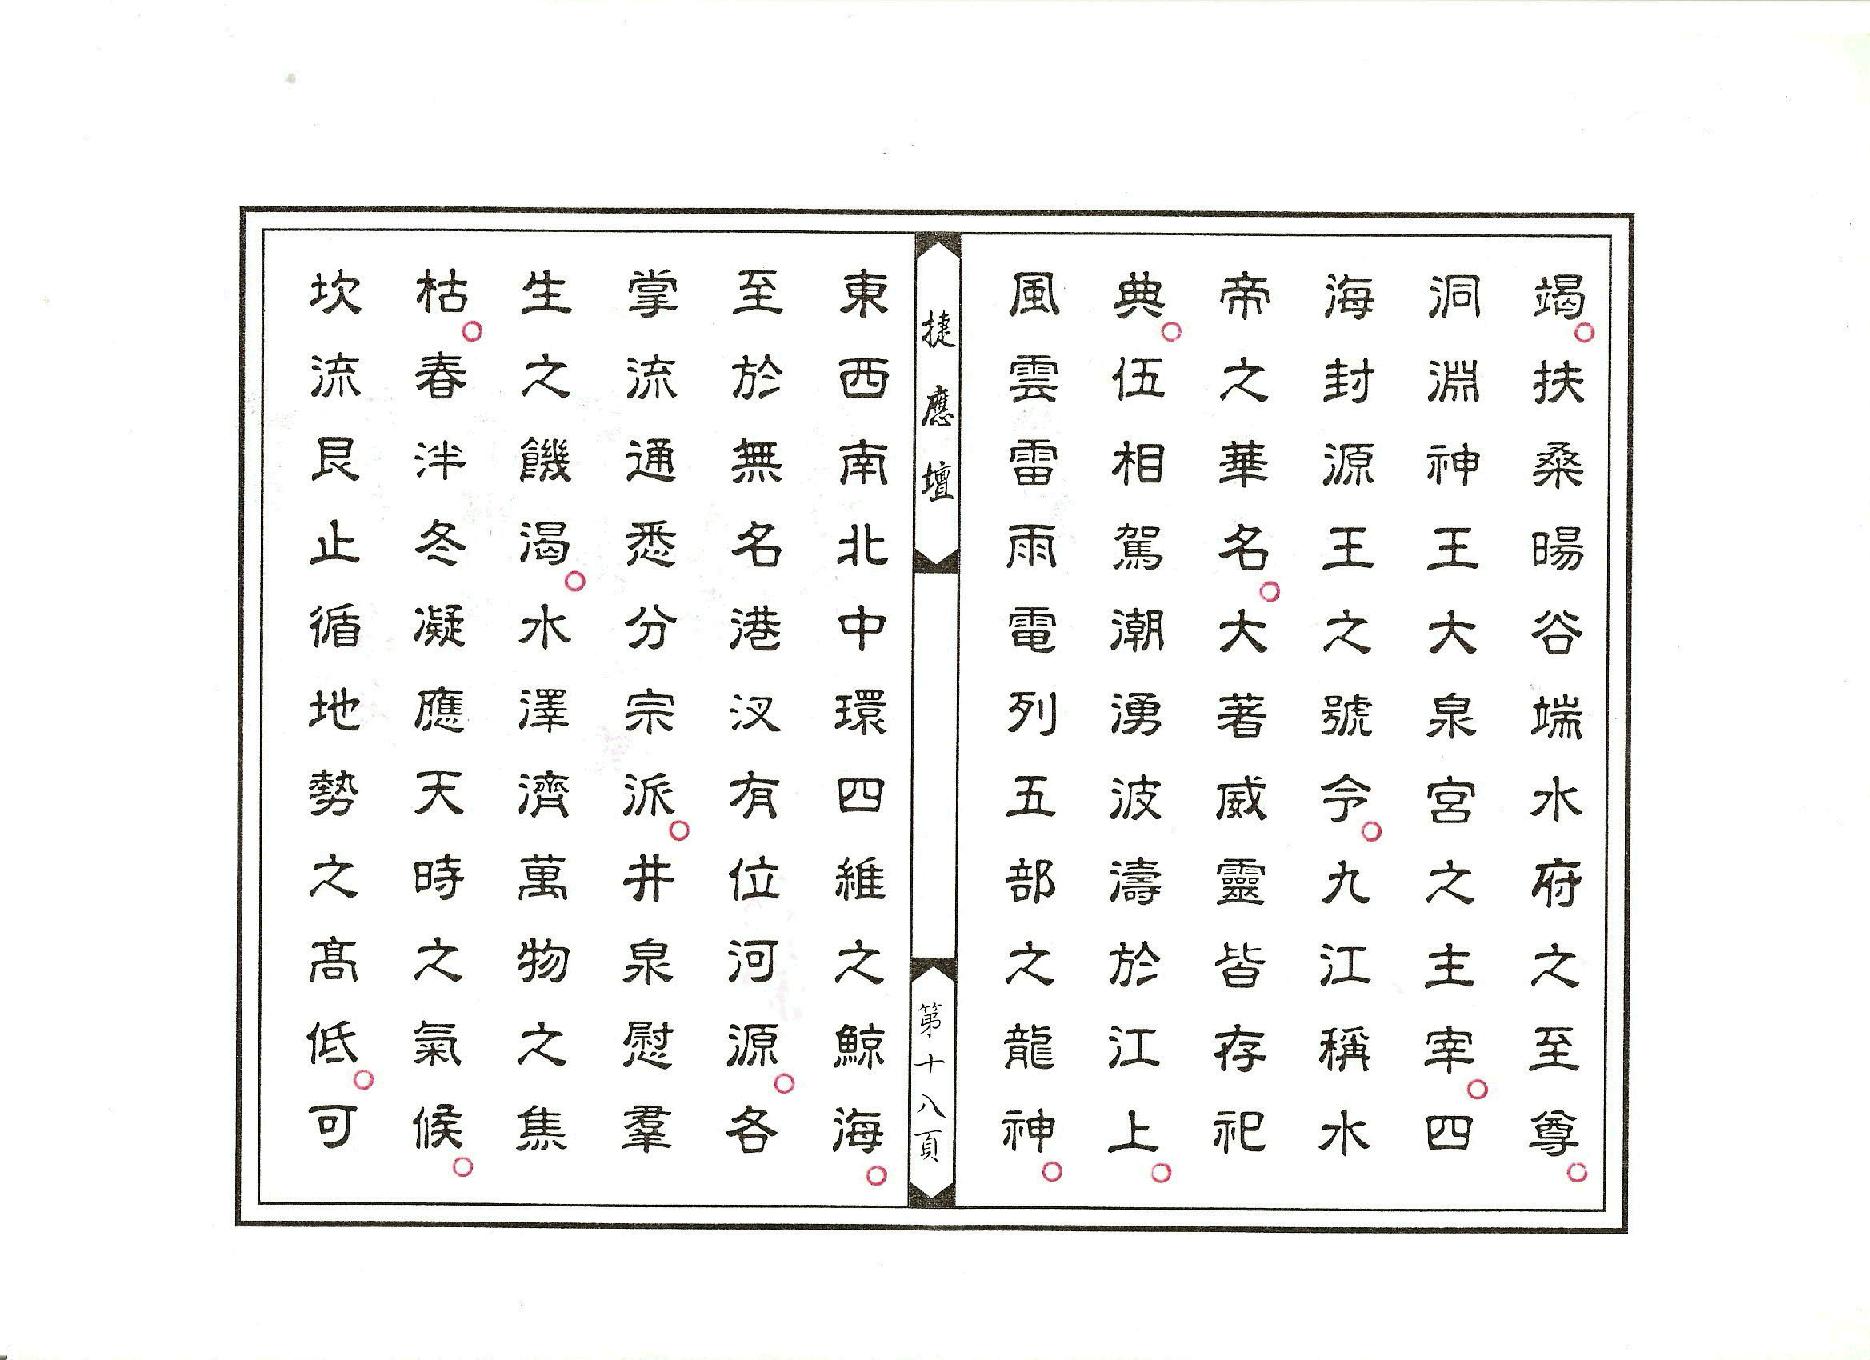 竭。扶桑暘谷端水府之至尊。
洞淵神王大泉宮之主宰。四
海封源王之號令。九江稱水
帝之華名。大著威靈皆存祀
典。伍相駕潮湧波濤於江上。
風雲雷雨電列五部之龍神。
捷應壇
第十八頁
東西南北中環四維之鯨海。
至於無名港汊有位河源。各
掌流通悉分宗派。井泉慰羣
生之饑渴。水澤濟萬物之焦
枯。春泮冬凝應天時之氣候。
坎流艮止循地勢之髙低。可